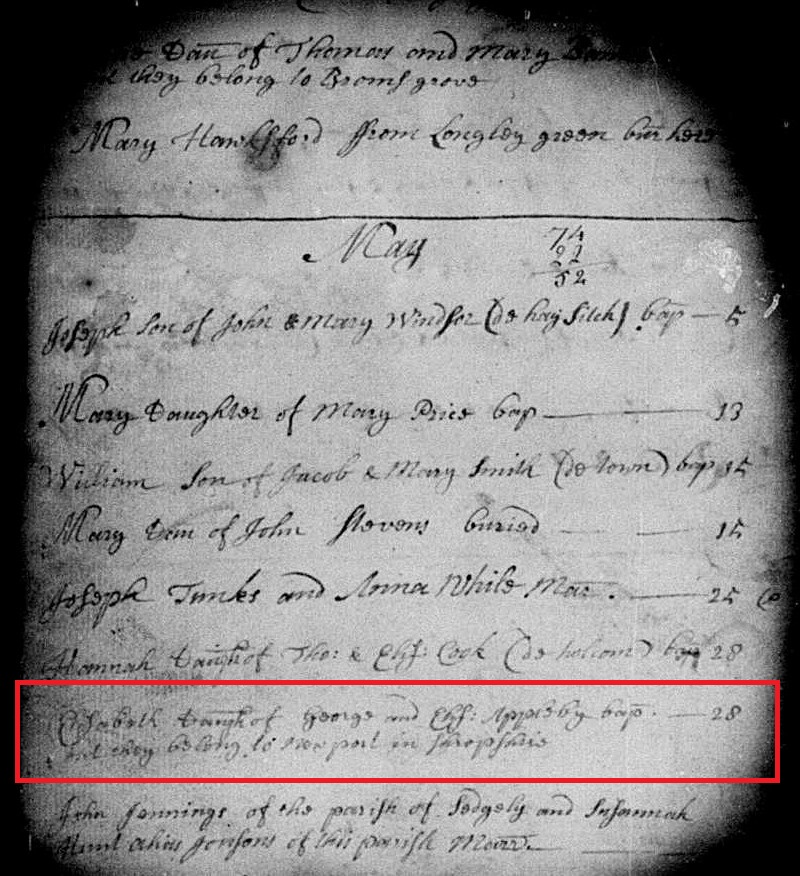 Dau of Thomas and Mary
they belong to Bromsgrove
Mary Hawksford from Longley green bur here
May
74
21
52
Joseph Son of John & Mary Windsor (de hay Sitch) bap — 5
Mary Daughter of Mary Price bap — — 13
William Son of Jacob & Mary Smith (de town) bap 15
Mary Dau of John Stevens buried — — 15
Joseph Tunks and Anna While Mar. — 25
Hannah Daugh of Tho: & Eliz: Cook (de holcom) bap 28
Elisabeth Daugh of George and Eliz: Appleby bap. — 28
but they belong to Newport in Shropshire
John Jennings of the parish of Sedgely and Susannah
Hunt alias Jonsons of this parish Marr. —